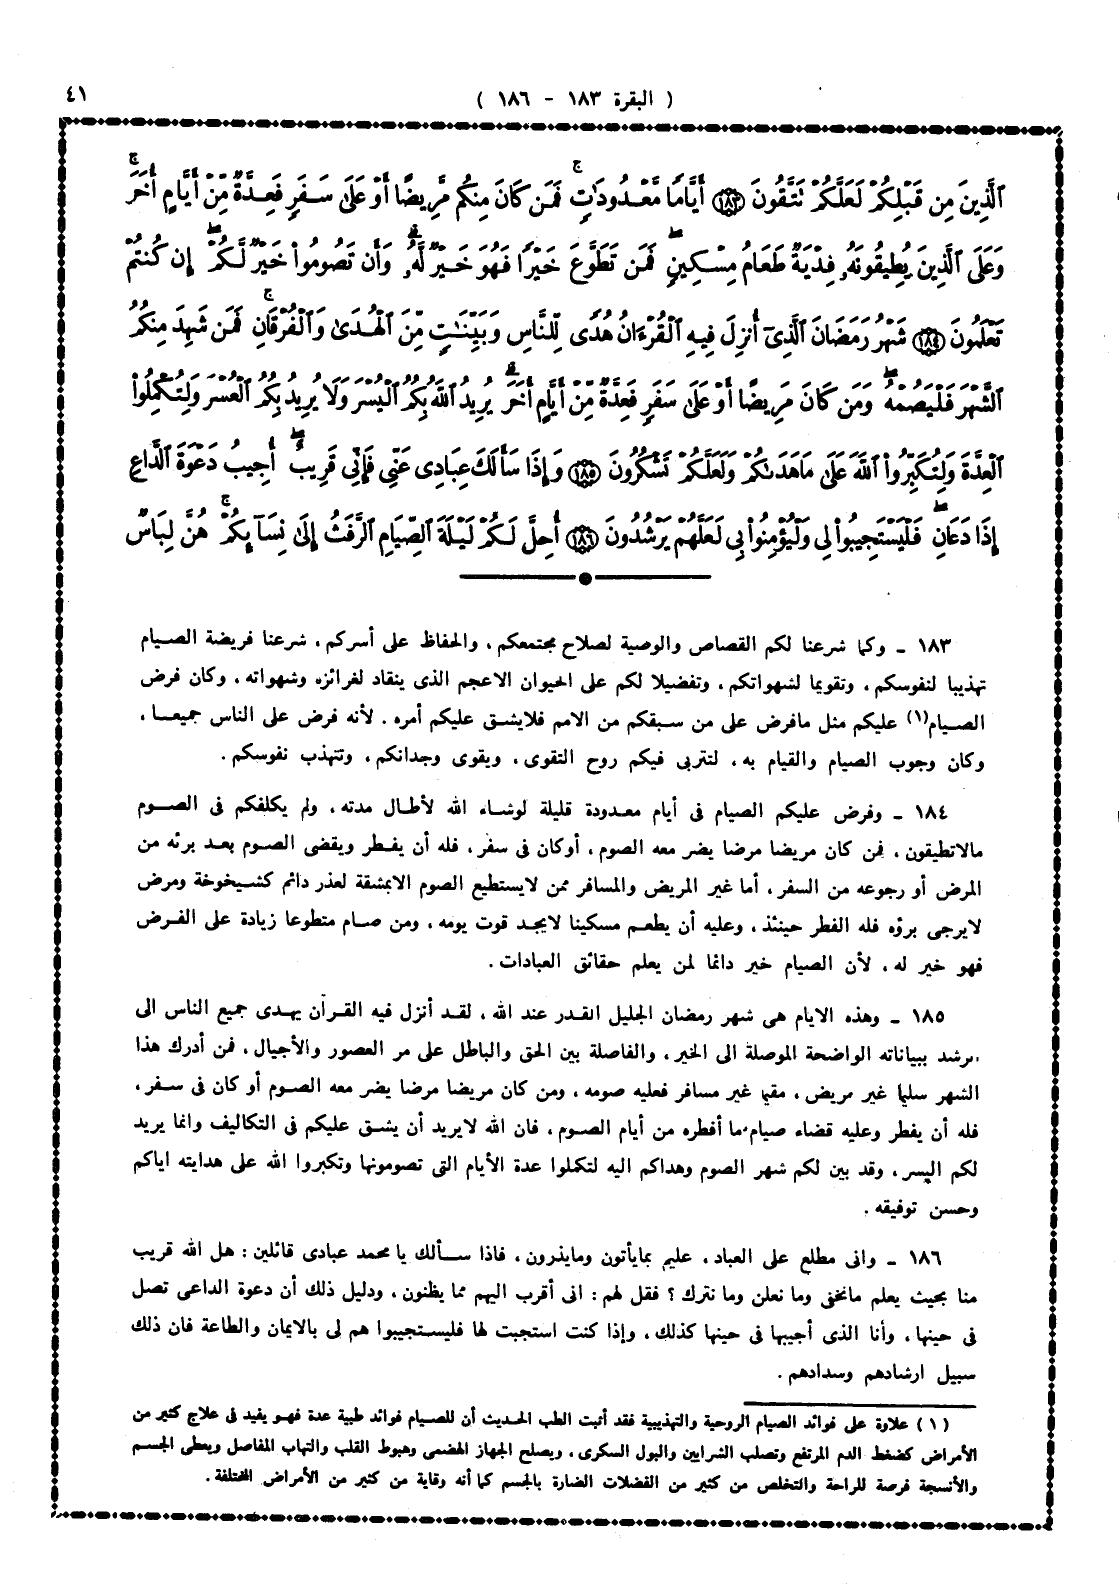 ( البقرة ١٨٣ - ١٨٦ )
٤١
ٱلَّذِينَ مِن قَبْلِكُمْ لَعَلَّكُمْ تَتَّقُونَ ۝١٨٣ أَيَّامًا مَّعْدُودَٰتٍ ۚ فَمَن كَانَ مِنكُم مَّرِيضًا أَوْ عَلَىٰ سَفَرٍ فَعِدَّةٌ مِّنْ أَيَّامٍ أُخَرَ ۚ
وَعَلَى ٱلَّذِينَ يُطِيقُونَهُۥ فِدْيَةٌ طَعَامُ مِسْكِينٍ ۖ فَمَن تَطَوَّعَ خَيْرًا فَهُوَ خَيْرٌ لَّهُۥ ۗ وَأَن تَصُومُوا۟ خَيْرٌ لَّكُمْ ۖ إِن كُنتُمْ
تَعْلَمُونَ ۝١٨٤ شَهْرُ رَمَضَانَ ٱلَّذِىٓ أُنزِلَ فِيهِ ٱلْقُرْءَانُ هُدًى لِّلنَّاسِ وَبَيِّنَٰتٍ مِّنَ ٱلْهُدَىٰ وَٱلْفُرْقَانِ ۚ فَمَن شَهِدَ مِنكُمُ
ٱلشَّهْرَ فَلْيَصُمْهُ ۖ وَمَن كَانَ مَرِيضًا أَوْ عَلَىٰ سَفَرٍ فَعِدَّةٌ مِّنْ أَيَّامٍ أُخَرَ ۗ يُرِيدُ ٱللَّهُ بِكُمُ ٱلْيُسْرَ وَلَا يُرِيدُ بِكُمُ ٱلْعُسْرَ وَلِتُكْمِلُوا۟
ٱلْعِدَّةَ وَلِتُكَبِّرُوا۟ ٱللَّهَ عَلَىٰ مَا هَدَىٰكُمْ وَلَعَلَّكُمْ تَشْكُرُونَ ۝١٨٥ وَإِذَا سَأَلَكَ عِبَادِى عَنِّى فَإِنِّى قَرِيبٌ ۖ أُجِيبُ دَعْوَةَ ٱلدَّاعِ
إِذَا دَعَانِ ۖ فَلْيَسْتَجِيبُوا۟ لِى وَلْيُؤْمِنُوا۟ بِى لَعَلَّهُمْ يَرْشُدُونَ ۝١٨٦ أُحِلَّ لَكُمْ لَيْلَةَ ٱلصِّيَامِ ٱلرَّفَثُ إِلَىٰ نِسَآئِكُمْ ۚ هُنَّ لِبَاسٌ
١٨٣ ـ وكما شرعنا لكم القصاص والوصية لصلاح مجتمعكم ، والحفاظ على أسركم ، شرعنا فريضة الصيام
تهذيبا لنفوسكم ، وتقويما لشهواتكم ، وتفضيلا لكم على الحيوان الاعجم الذى ينقاد لغرائزه وشهواته ، وكان فرض
الصيام(١) عليكم مثل مافرض على من سبقكم من الامم فلايشق عليكم أمره . لأنه فرض على الناس جميعا ،
وكان وجوب الصيام والقيام به ، لتتربى فيكم روح التقوى ، ويقوى وجدانكم ، وتتهذب نفوسكم .
١٨٤ ـ وفرض عليكم الصيام فى أيام معدودة قليلة لوشاء الله لأطال مدته ، ولم يكلفكم فى الصوم
مالاتطيقون ، فمن كان مريضا مرضا يضر معه الصوم ، أوكان فى سفر ، فله أن يفطر ويقضى الصوم بعد برئه من
المرض أو رجوعه من السفر ، أما غير المريض والمسافر ممن لايستطيع الصوم الابمشقة لعذر دائم كشيخوخة ومرض
لايرجى برؤه فله الفطر حينئذ ، وعليه أن يطعم مسكينا لايجد قوت يومه ، ومن صام متطوعا زيادة على الفرض
فهو خير له ، لأن الصيام خير دائما لمن يعلم حقائق العبادات .
١٨٥ ـ وهذه الايام هى شهر رمضان الجليل القدر عند الله ، لقد أنزل فيه القرآن يهدى جميع الناس الى
الرشد ببياناته الواضحة الموصلة الى الخير ، والفاصلة بين الحق والباطل على مر العصور والأجيال ، فمن أدرك هذا
الشهر سليما غير مريض ، مقيما غير مسافر فعليه صومه ، ومن كان مريضا مرضا يضر معه الصوم أو كان فى سفر ،
فله أن يفطر وعليه قضاء صيام ما أفطره من أيام الصوم ، فان الله لايريد أن يشق عليكم فى التكاليف وانما يريد
لكم اليسر ، وقد بين لكم شهر الصوم وهداكم اليه لتكملوا عدة الأيام التى تصومونها وتكبروا الله على هدايته اياكم
وحسن توفيقه .
١٨٦ ـ وانى مطلع على العباد ، عليم بمايأتون ومايذرون ، فاذا سألك يا محمد عبادى قائلين : هل الله قريب
منا بحيث يعلم مانخفى وما نعلن وما نترك ؟ فقل لهم : انى أقرب اليهم مما يظنون ، ودليل ذلك أن دعوة الداعى تصل
فى حينها ، وأنا الذى أجيبها فى حينها كذلك ، وإذا كنت استجبت لها فليستجيبوا هم لى بالايمان والطاعة فان ذلك
سبيل ارشادهم وسدادهم .
( ١ ) علاوة على فوائد الصيام الروحية والتهذيبية فقد أثبت الطب الحديث أن للصيام فوائد طبية عدة فهو يفيد فى علاج كثير من
الأمراض كضغط الدم المرتفع وتصلب الشرايين والبول السكرى ، ويصلح الجهاز الهضمى وهبوط القلب والتهاب المفاصل ويعطى الجسم
والأنسجة فرصة للراحة والتخلص من كثير من الفضلات الضارة بالجسم كما أنه وقاية من كثير من الأمراض المختلفة .